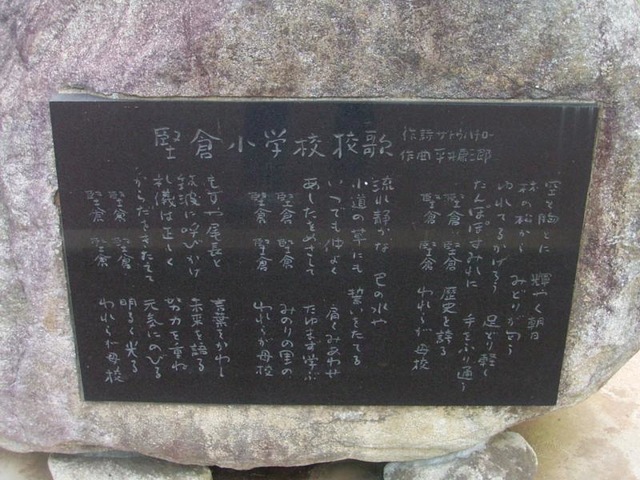 堅倉小学校校歌
作詞 サトウハチロー
作曲 平井康三郎
輝やく朝日
林の松から みどりが匂う
ゆれてるかげろう 足どり軽く
たんぽぽすみれに 手をふり通う
堅倉 堅倉 歴史を誇る
堅倉 堅倉 われらが母校
流れ静かな 巴の水や
小道の草にも 誓いをたてる
いつでも仲よく 肩くみあわせ
あしたをめざして たゆまず学ぶ
堅倉 堅倉 みのりの里の
堅倉 堅倉 われらが母校
もずや尾長と 言葉をかわし
筑波に呼びかけ 未来を語る
礼儀は正しく 努力を重ね
からだをきたえて 元気にのびる
堅倉 堅倉 明るく光る
堅倉 堅倉 われらが母校